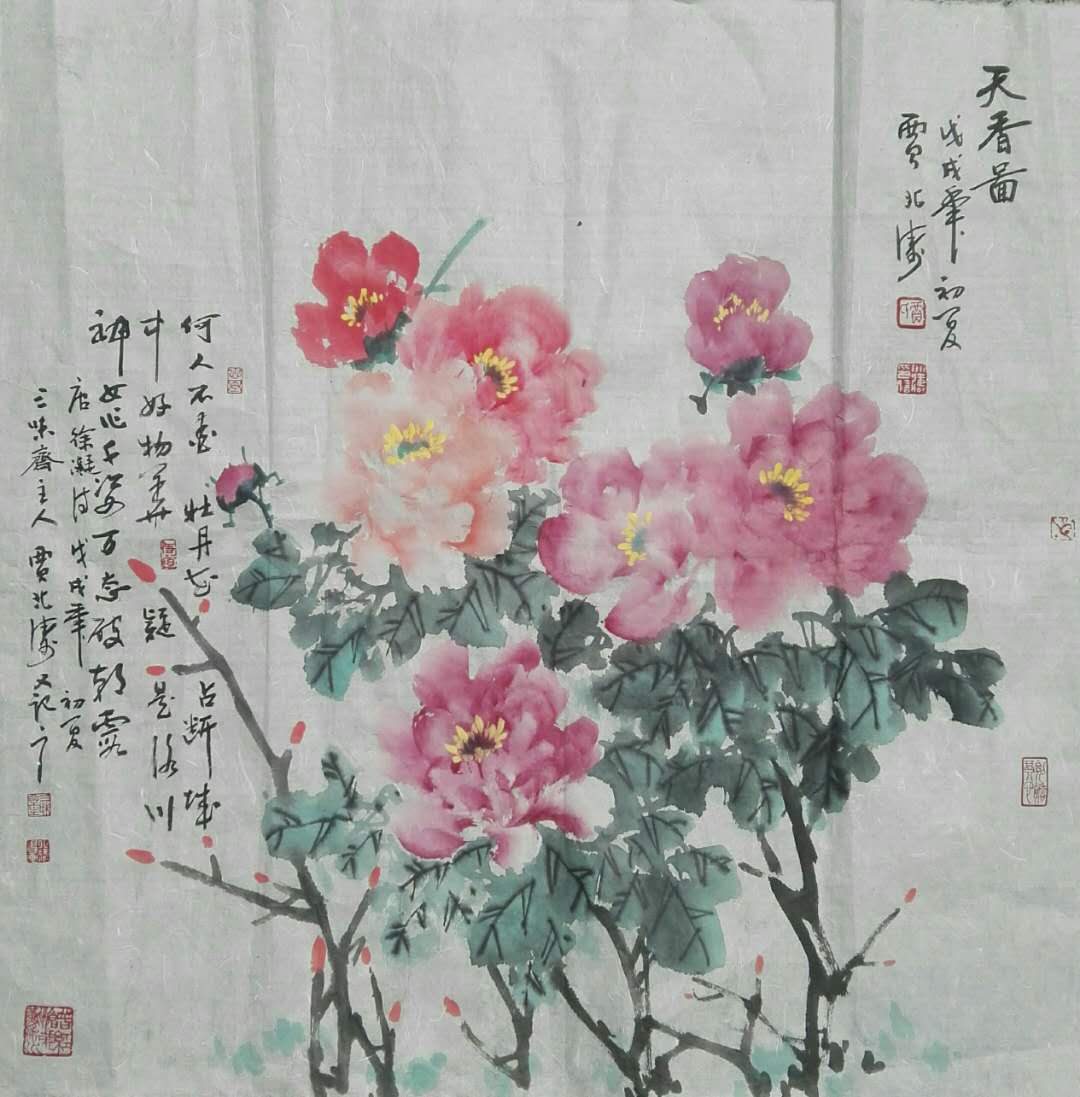 天香图
戊戌年初夏
賈北涛
何人不爱牡丹花占断城
中好物華疑是洛川
神女作千姿万态破朝霞
唐徐凝诗戊戌年初夏
三味齋主人賈北涛又记之